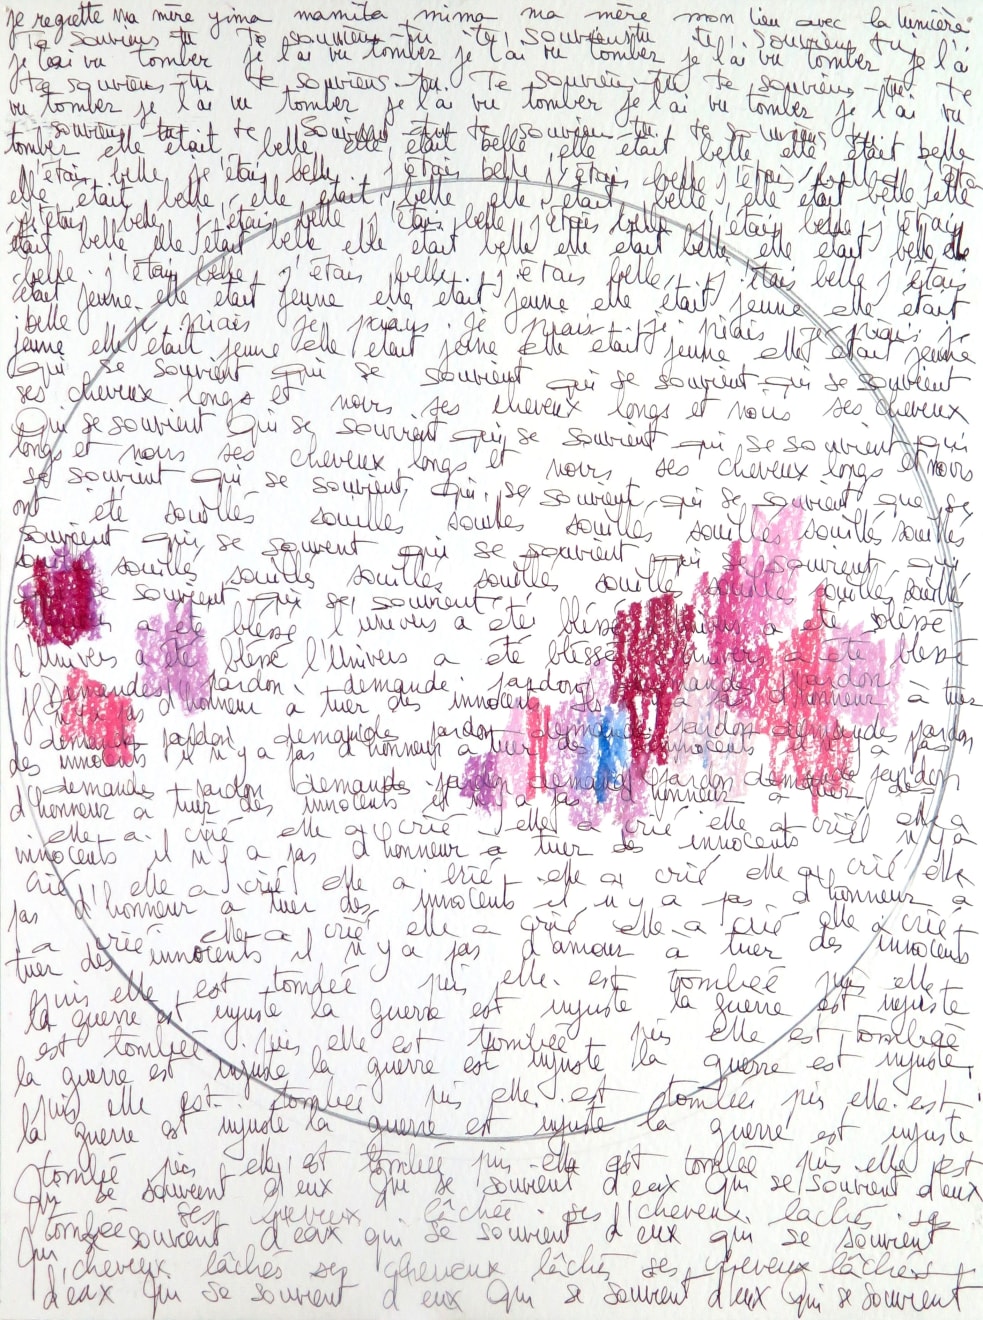 je regrette ma mère yima mamita mima ma mère mon lien avec la lumière
Te souviens tu Te souviens tu te souviens tu te souviens tu
je l'ai vu tomber je l'ai vu tomber je l'ai vu tomber je l'ai
te souviens-tu te souviens-tu. Te souviens-tu te souviens-tu te
vu tomber je l'ai vu tomber je l'ai vu tomber je l'ai vu
souviens tu te souviens tu te souviens tu te souviens
tomber elle était belle elle était belle elle était belle elle était belle
j'étais belle, j'étais belle, j'étais belle j'étais belle j'étais
elle était belle elle était belle elle était belle elle était belle elle
j'étais belle j'étais belle j'étais belle j'étais belle j'étais belle j'étais
était belle elle était belle elle était belle elle était belle elle était belle
belle. j'étais belle j'étais belle. j'étais belle, j'étais belle j'étais
était jeune elle était jeune elle était jeune elle était jeune elle était
belle je priais je priais. je priais je priais je
jeune elle était jeune elle était jeune elle était jeune elle était jeune
qui se souvient qui se souvient qui se souvient qui se souvient
ses cheveux longs et noirs ses cheveux longs et noirs ses cheveux
Qui se souvient Qui se souvient qui se souvient qui se souvient qui
longs et noirs ses cheveux longs et noirs ses cheveux longs et noirs
se souvient qui se souvient, qui se souvient, qui se souvient que se
ont été souillés souillés souillés souillés souillés souillés souillés
souvient qui se souvient qui se souvient qui se souvient
souillés souillés souillés souillés souillés souillés souillés souillés
se souvient qui se souvient
a été blessé l'univers a été blessé l'univers a été blessé
l'Univers a été blessé l'Univers a été blessé univers a été blesse
Demandes pardon demande pardon pardon
il n'y a pas d'honneur à tuer des innocents il n'y a pas d'honneur à tuer
demande pardon demandes pardon demande pardon demandes pardon
des innocents il n'y a pas d'honneur à tuer des innocents il n'y a pas
demande pardon demande pardon demande pardon demande pardon
d'honneur à tuer des innocents il n'y a pas d'honneur à tuer des
elle a crié elle a crié elle a crié elle a crié elle a
innocents il n'y a pas d'honneur a tuer des innocents il n'y a
crié elle a crié elle a crié elle a crié elle a crié elle
pas d'honneur a tuer des innocents il n'y a pas d'honneur a
a crié elle a crié elle a crié elle a crié elle a crié
tuer des innocents il n'y a pas d'amour a tuer des innocents
puis elle est tombée puis elle est tombée puis elle
la guerre est injuste la guerre est injuste la guerre est injuste
est tombée puis elle est tombée puis elle est tombée
la guerre est injuste la guerre est injuste la guerre est injuste,
puis elle est tombée puis elle est tombée puis elle est
la guerre est injuste la guerre est injuste la guerre est injuste
tombée puis elle est tombée puis elle est tombée puis elle est
Qui se souvient d'eux Qui se souvient d'eux Qui se souvient d'eux
tombée ses cheveux lâchés ses cheveux lachés ses
Qui se souvient d'eux qui se souvient d'eux qui se souvient
cheveux lâchés ses cheveux lâchés ses cheveux lâchés
d'eux Qui se souvient d'eux Qui se souvient d'eux Qui se souvient